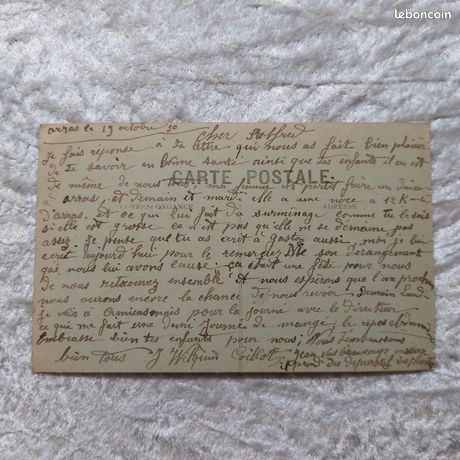 leboncoin
arras le 19 octobre 30
Cher
je fais réponse à ta lettre qui nous as fait bien plaisir
de savoir en bonne santé ainsi que tes enfants il en est
CARTE POSTALE
de même de nous ma femme est partit faire un
CORRESPONDANCE
ADRESSE
arras, et demain et mardi elle a une noce a 12 K
arras. Et ce qui lui fait du surminage comme tu le sais
si elle est grosse ce n'est pas qu'elle ne se demaine pas
assez. je pense que tu as ecrit à gaston aussi, moi je lui
ecrit aujourd'hui pour le remerciez de son dérangement
que nous lui avons causé. ça était une fête pour nous
de nous retrouvez ensemble. Et nous espérons que l'an prochain
nous aurons encore la chance de nous revoir. Demain Lundi
je vais à Amiens pour la journée avec le Directeur
ce que me fait une demi journée de mangé le repos
Embrasse bien tes enfants pour nous, Nous t'embrassons
bien tous